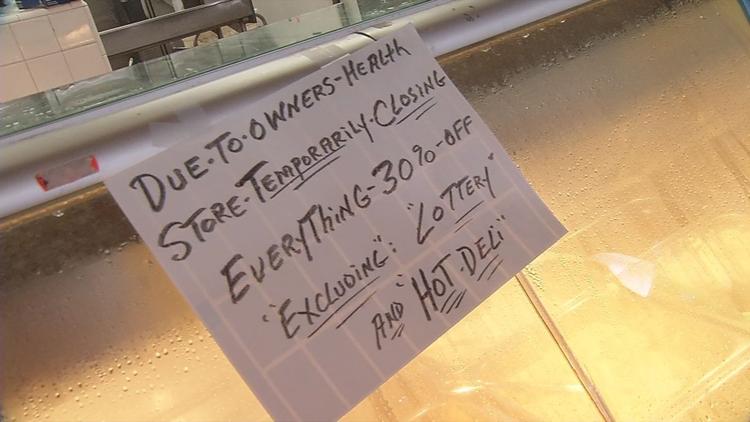 DUE·TO·OWNERS-HEALTH
STORE·TEMPORARILY·CLOSING
EVERYTHING-30%-OFF
"EXCLUDING": "LOTTERY"
AND "HOT·DELI"